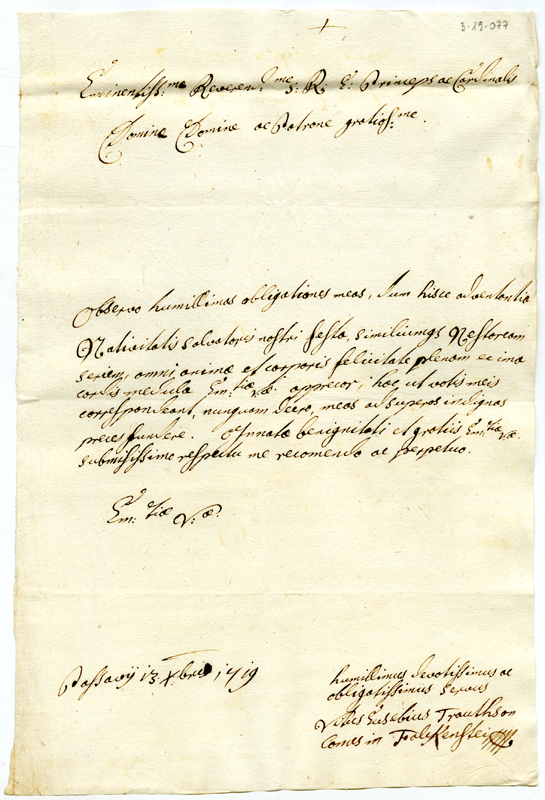 +
3-19-077
Eminentiss:me Reverend:me S: R: E: Princeps ac Cardinalis
Domine Domine ac Patrone gratiosme.
Observo humillimas obligationes meas, dum hisce adventantia
Nativitatis Salvatoris nostri festa, similiumqs Nestoream
seriem, omni animæ et corporis felicitate plenam ex ima
cordis medula Em:tiæ væ. apprecor, hæc ut votis meis
correspondeant, nunquam deero, meas ad superos indignas
preces fundere. Innatæ benignitati et gratiis Em:tiæ væ.
submississimo respectu me recomendo ac perpetuo.
Em:tiæ V:æ.
Passavij 13 Xbris 1719
humillimus devotissimus ac
obligatissimus servus
Vitus Eusebius Trauthson
Comes in Falkenstein